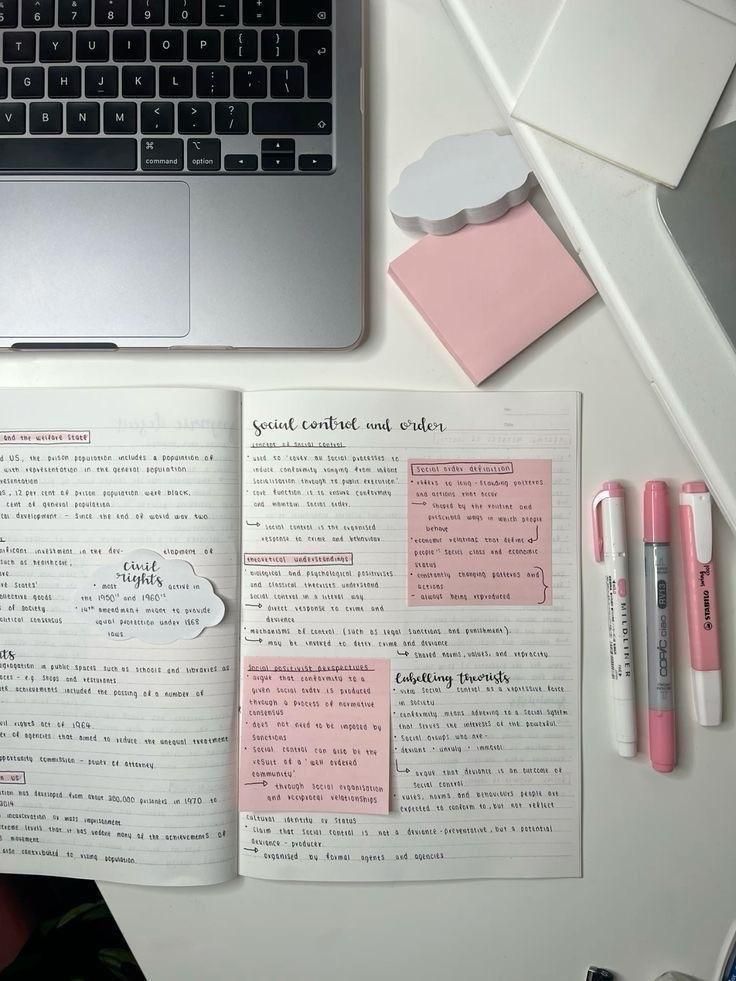 7
8
9
0
T Y U I O P { [ } ]
G H J K L : ; " '
V B N M < , > . ? /
command option
and the welfare state
d US, the prison population includes a population of
with representation in the general population
, 12 per cent of prison population were black,
cent of general population.
development - since the end of world war two
investment in the dev- opment of
as healthcare,
states'
goods
of society
political consensus
civil
rights
• most active in the
1950's and 1960's
• 14th amendment meant to provide
equal protection under 1868
laws.
in public spaces such as schools and libraries as
- e.g. shops and restaurants
achievements included the passing of a number of
civil rights act of 1964
of agencies that aimed to reduce the unequal treatment
opportunity commission - power of attorney.
US
has developed from about 200,000 prisoners in 1970 to
2014
incarceration or mass imprisonment
extreme levels that it has undone many of the achievements of
movement
also contributed to rising population.
social control and order
concept of social control
• used to 'cover all social processes to
induce conformity ranging from infant
socialisation through to public execution'
• core function is to ensure conformity
and maintain social order.
→ social control is the organised
response to crime and behaviour
theoretical understandings
• biological and psychological positivists
and classical theorists understand
social control in a literal way
→ direct response to crime and
deviance
• mechanisms of control (such as legal sanctions and punishment).
→ may be invoked to deter crime and deviance
→ shared norms, values, and reprocity.
social order definition
• refers to long-standing patterns
and actions that occur
→ shaped by the routine and
prescribed ways in which people
behave
• economic relations that define
people's social class and economic
status
• constantly changing patterns and
actions
- always being reproduced
social positivist perspectives
• argue that conformity to a
given social order is produced
through a process of normative
consensus
• does not need to be imposed by
sanctions
• social control can also be the
result of a 'well ordered
community'
→ through social organisation
and reciprocal relationships
labelling theorists
• view social control as a repressive force
in society
• conformity means adhering to a social system
that serves the interests of the powerful
• social groups who are -
• deviant • unruly • immoral
→ argue that deviance is an outcome of
social control
• rules, norms and behaviours people are
expected to conform to, but not reflect
cultural identity or status
• claim that social control is not a deviance-preventative, but a potential
deviance-producer.
→ organised by formal agents and agencies
MILDLINER
COPIC ciao
STABILO swing cool